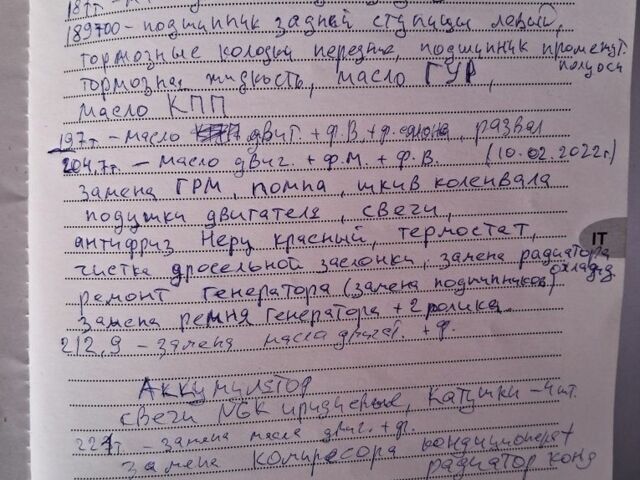 189700 - подшипник задней ступицы левый,
тормозные колодки передние, подшипник промежут.
полуоси
тормозная жидкость, масло ГУР,
масло КПП
197т - масло двиг. + ф.В. + ф. салона, развал
204,7т. - масло двиг. + ф.М. + ф.В. (10.02.2022г)
замена ГРМ, помпа, шкив коленвала
подушки двигателя, свечи,
антифриз Hepu красный, термостат,
IT
чистка дросельной заслонки, замена радиатора
охлажд
ремонт генератора (замена подшипников)
замена ремня генератора + 2 ролика
212,9 - замена масла двигат. + ф.
Аккумулятор
свечи NGK иридиевые, катушки - 4шт.
221т - замена масла двиг. + ф.
замена компресора кондиционера +
радиатор конд